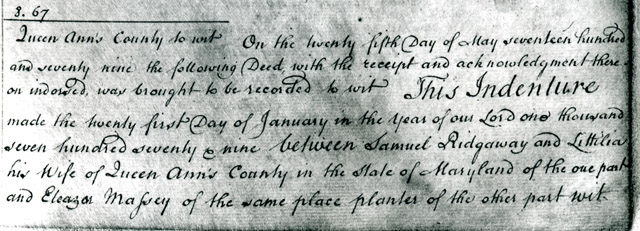 8.67
Queen Ann's County to wit On the twenty fifth Day of May seventeen hundred
and seventy nine the following Deed with the receipt and acknowledgment there
on indorsed, was brought to be recorded to wit This Indenture
made the twenty first Day of January in the year of our Lord one thousand
seven hundred seventy & nine between Samuel Ridgaway and Littilia
his Wife of Queen Ann's County in the State of Maryland of the one part
and Eleazor Massey of the same place planter of the other part wit